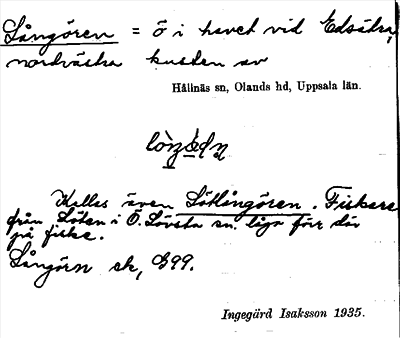 Långören = ö i havet vid Edsätra,
nordvästra kusten av
Hållnäs sn, Olands hd, Uppsala län.
Kallas även Lötlångören. Fiskare
från Löten i Ö. Lövsta sn. låga förr där
på fiske.
Långörn ek, G99.
Ingegärd Isaksson 1935.